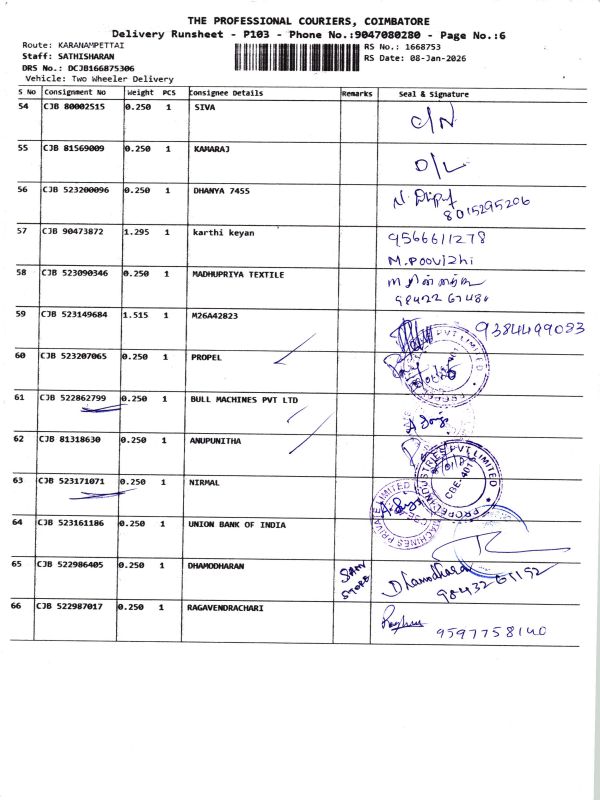 THE PROFESSIONAL COURIERS, COIMBATORE
Delivery Runsheet - P103 - Phone No.:9047080280 - Page No.:6
Route: KARANAMPETTAI
RS No.: 1668753
Staff: SATHISHARAN
RS Date: 08-Jan-2026
DRS No.: DCJB166875306
Vehicle: Two Wheeler Delivery
S No Consignment No Weight PCS Consignee Details Remarks Seal & Signature
54 CJB 80002515 0.250 1 SIVA C/N
55 CJB 81569009 0.250 1 KAMARAJ D/L
56 CJB 523200096 0.250 1 DHANYA 7455
8015295206
57 CJB 90473872 1.295 1 karthi keyan 9566611278
M.Poovizhi
58 CJB 523090346 0.250 1 MADHUPRIYA TEXTILE
98422 67480
59 CJB 523149684 1.515 1 M26A42823 9384499083
60 CJB 523207065 0.250 1 PROPEL
61 CJB 522862799 0.250 1 BULL MACHINES PVT LTD
62 CJB 81318630 0.250 1 ANUPUNITHA
63 CJB 523171071 0.250 1 NIRMAL
PROPEL INDUSTRIES PVT LIMITED
CBE-401
MACHINES PRIVATE LIMITED
64 CJB 523161186 0.250 1 UNION BANK OF INDIA
65 CJB 522986405 0.250 1 DHAMODHARAN STORE Dhamodharan
98432 61192
66 CJB 522987017 0.250 1 RAGAVENDRACHARI
9597758140